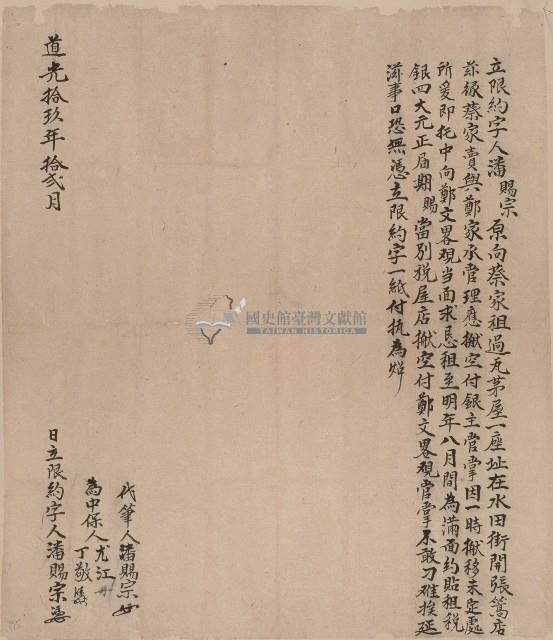 立限約字人潘賜宗原向蔡家租過瓦茅屋一座址在水田街開張篙店
茲緣蔡家賣與鄭家承管理應搬空付銀主管掌因一時搬移未定處
所爰即托中向鄭文畧觀当面求恳租至明年八月間為滿面約貼租税
銀四大元正届期賜當別税屋店搬空付鄭文畧觀管掌不敢刁难挨延
滋事口恐無憑立限約字一紙付执為炤
代筆人潘賜宗
為中保人尤江
丁敬
道光拾玖年拾弍月
日立限約字人潘賜宗
國史館臺灣文獻館
TAIWAN HISTORICA